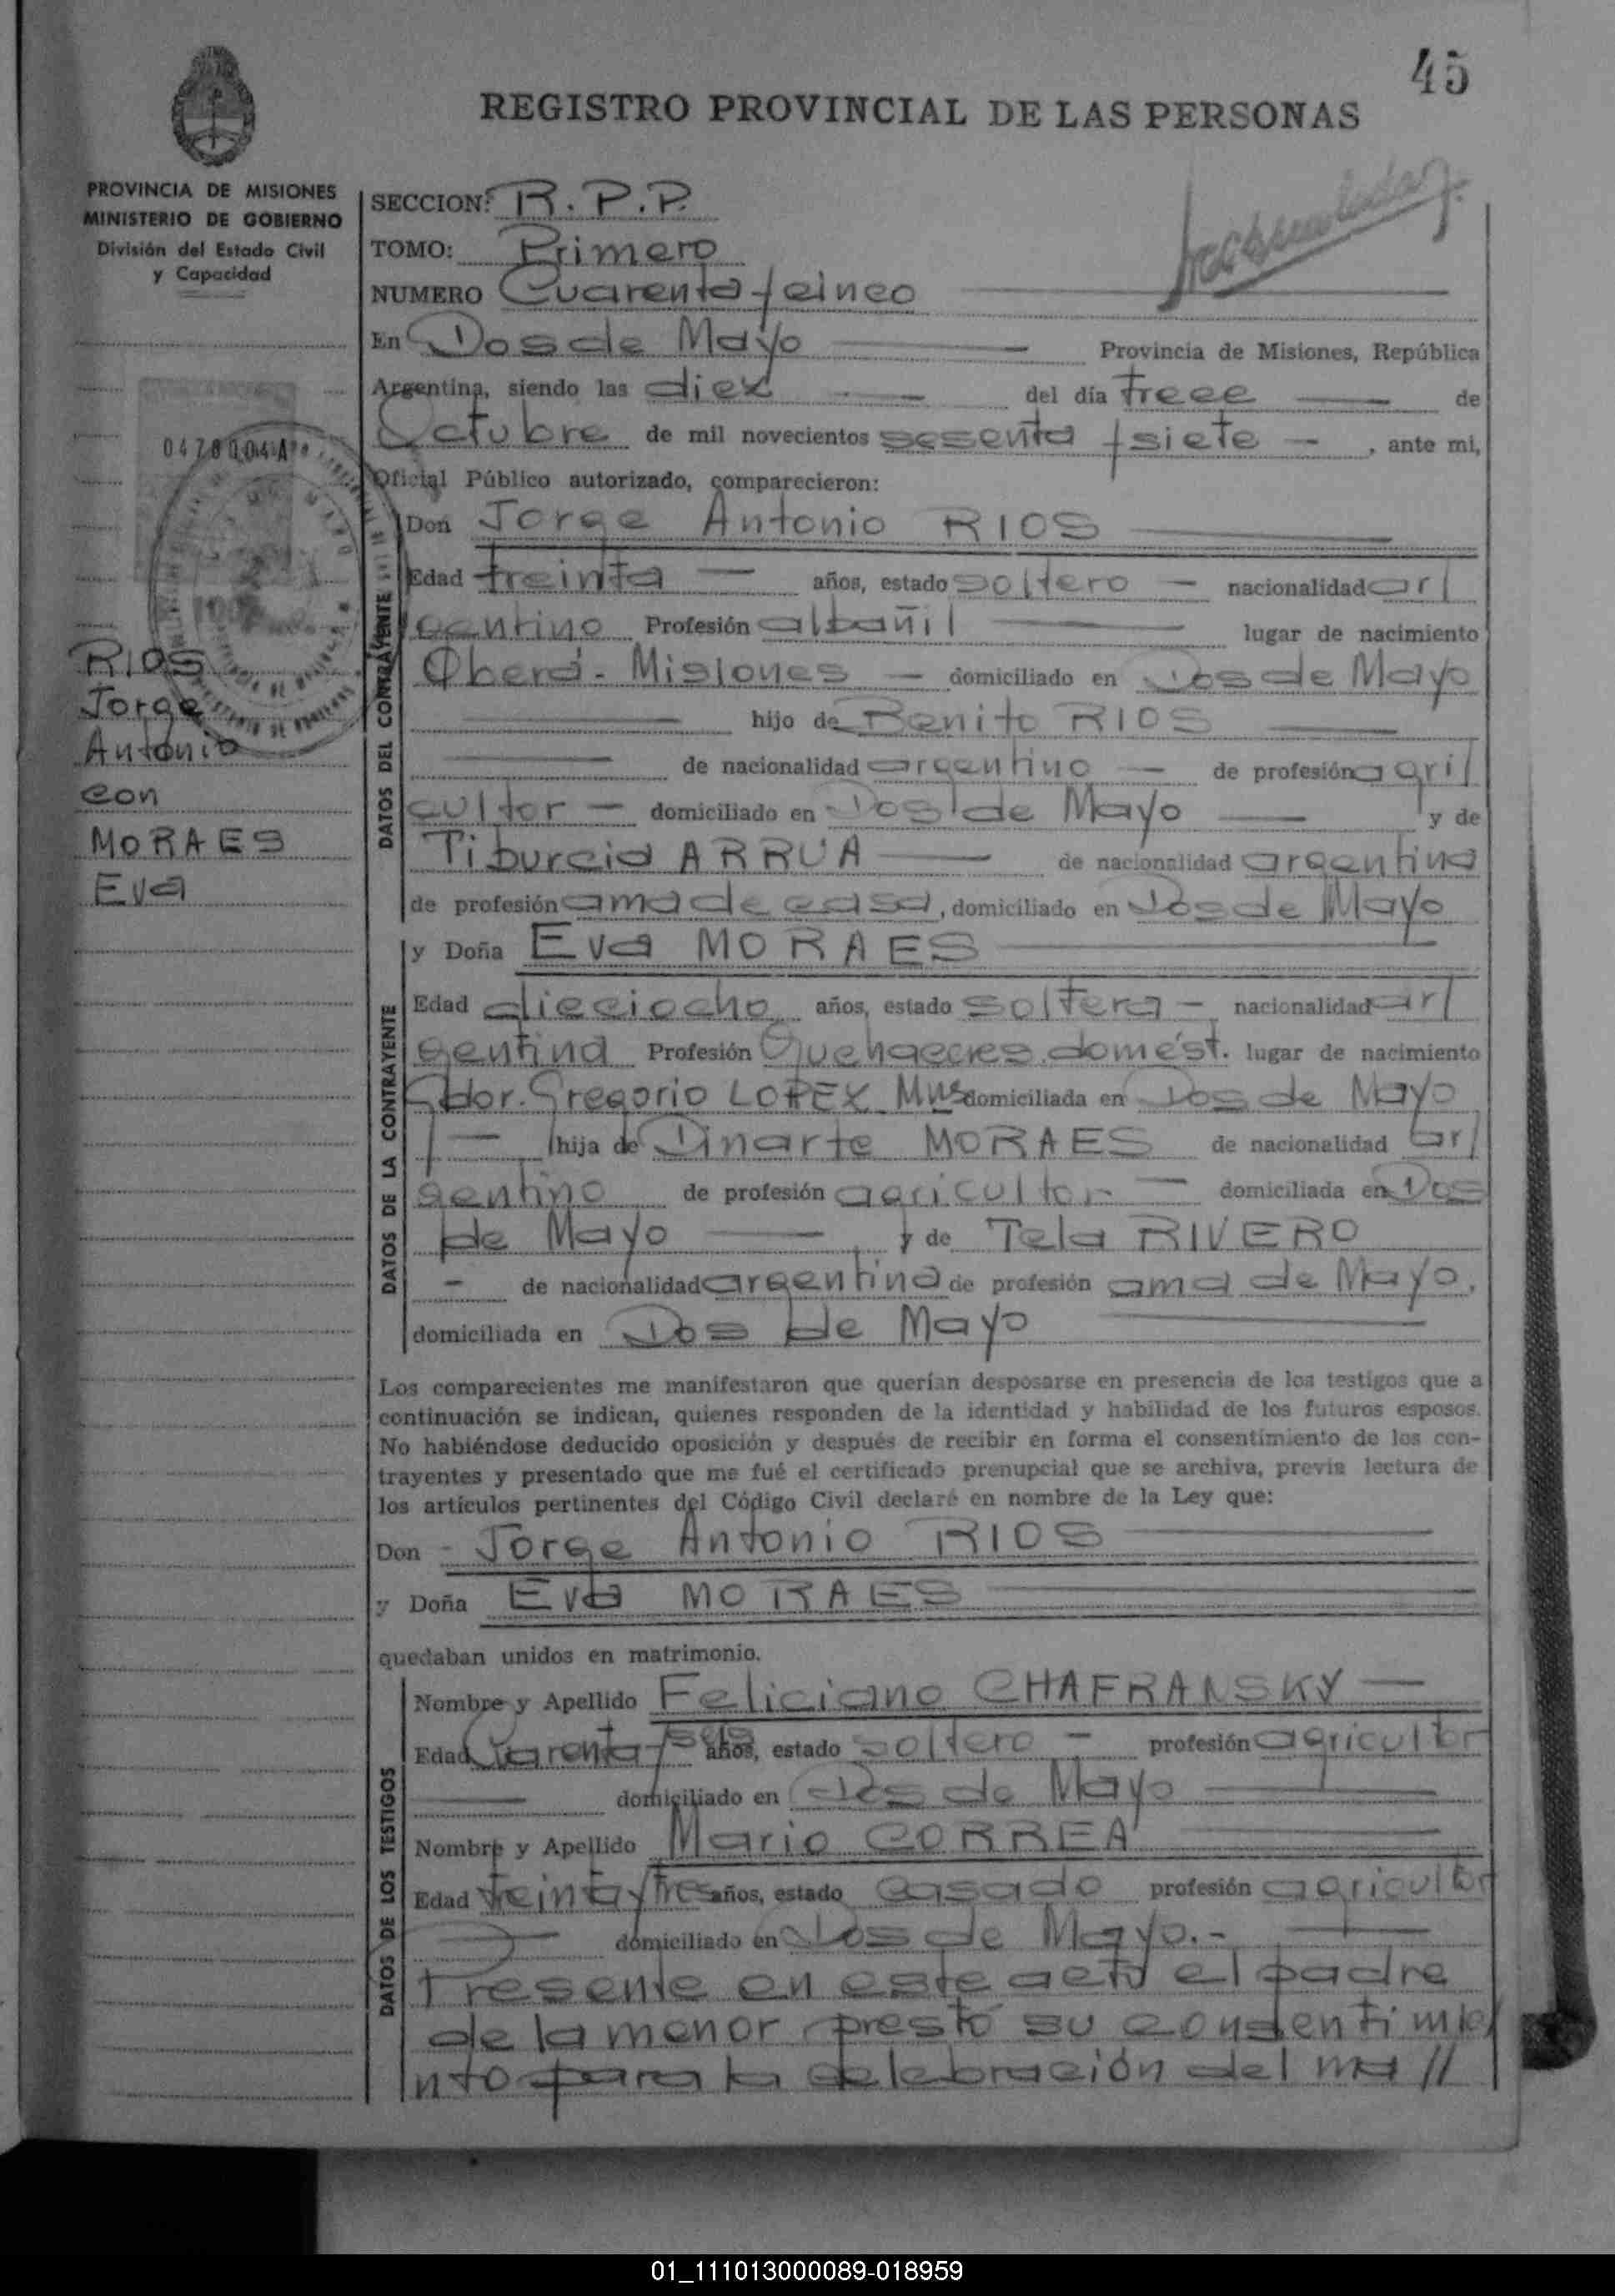 45
REGISTRO PROVINCIAL DE LAS PERSONAS
PROVINCIA DE MISIONES
MINISTERIO DE GOBIERNO
División del Estado Civil
y Capacidad
SECCION: R.P.P.
TOMO: Primero
NUMERO Cuarenta y cinco
En Dos de Mayo Provincia de Misiones, República
Argentina, siendo las diez del día trece de
Octubre de mil novecientos sesenta y siete - , ante mi,
Oficial Público autorizado, comparecieron:
0478004A
RIOS
Jorge
Antonio
con
MORAES
Eva
DATOS DEL CONTRAYENTE
Don Jorge Antonio RIOS
Edad treinta - años, estado soltero - nacionalidad ar/
gentino Profesión albañil lugar de nacimiento
Oberá - Misiones - domiciliado en Dos de Mayo
hijo de Benito RIOS
de nacionalidad argentino - de profesión agri/
cultor - domiciliado en Dos de Mayo y de
Tiburcia ARRUA de nacionalidad argentina
de profesión ama de casa, domiciliado en Dos de Mayo
y Doña Eva MORAES
DATOS DE LA CONTRAYENTE
Edad dieciocho años, estado soltera - nacionalidad ar/
gentina Profesión Quehaceres domést. lugar de nacimiento
Gdor. Gregorio LOPEZ Mnes domiciliada en Dos de Mayo
- hija de Dinarte MORAES de nacionalidad ar/
gentino de profesión agricultor - domiciliada en Dos
de Mayo y de Tela RIVERO
- de nacionalidad argentina de profesión ama de Mayo,
domiciliada en Dos de Mayo
Los comparecientes me manifestaron que querían desposarse en presencia de los testigos que a
continuación se indican, quienes responden de la identidad y habilidad de los futuros esposos.
No habiéndose deducido oposición y después de recibir en forma el consentimiento de los con-
trayentes y presentado que me fué el certificado prenupcial que se archiva, previa lectura de
los artículos pertinentes del Código Civil declaré en nombre de la Ley que:
Don - Jorge Antonio RIOS
y Doña Eva MORAES
quedaban unidos en matrimonio.
DATOS DE LOS TESTIGOS
Nombre y Apellido Feliciano CHAFRANSKY
Edad Cuarenta y seis años, estado soltero - profesión agricultor
domiciliado en Dos de Mayo
Nombre y Apellido Mario CORREA
Edad treinta y tres años, estado casado profesión agricultor
domiciliado en Dos de Mayo.-
Presente en este acto el padre
de la menor prestó su consentimie/
nto para la celebración del ma//
01_111013000089-018959